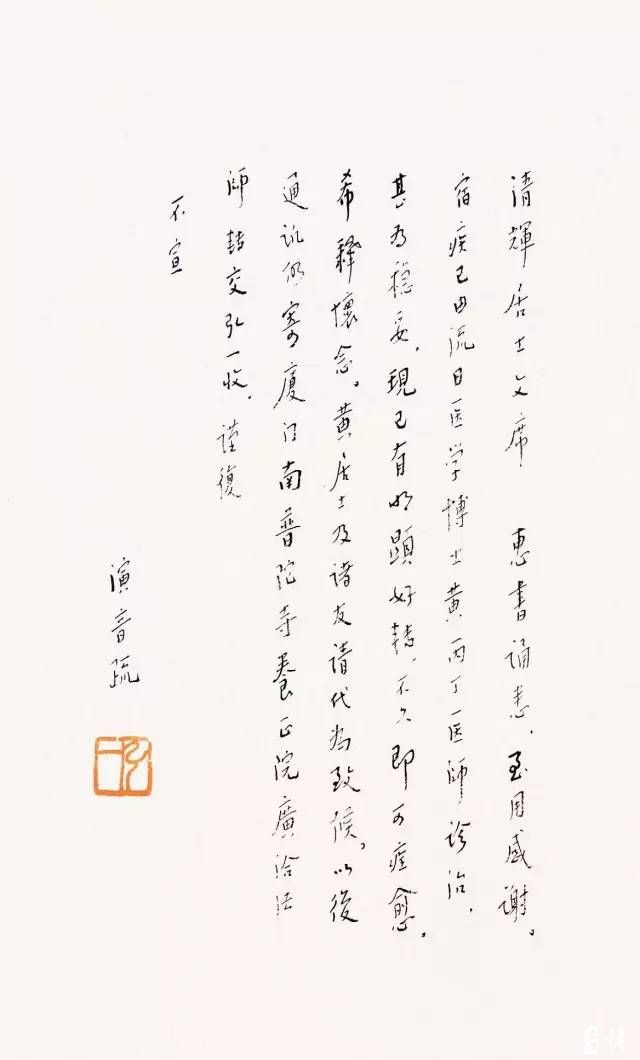 清輝居士文席　惠書誦悉、至用感谢。
宿疾已由流日医学博士黄丙丁医師诊治、
甚为穏妥、現已有明顕好转、不久即可痊愈。
希釋懷念。黄居士及诸友请代为致候。以後
通讯仍寄廈门南普陀寺養正院廣洽法
師转交弘一收、谨復
不宣
演音疏
弘一